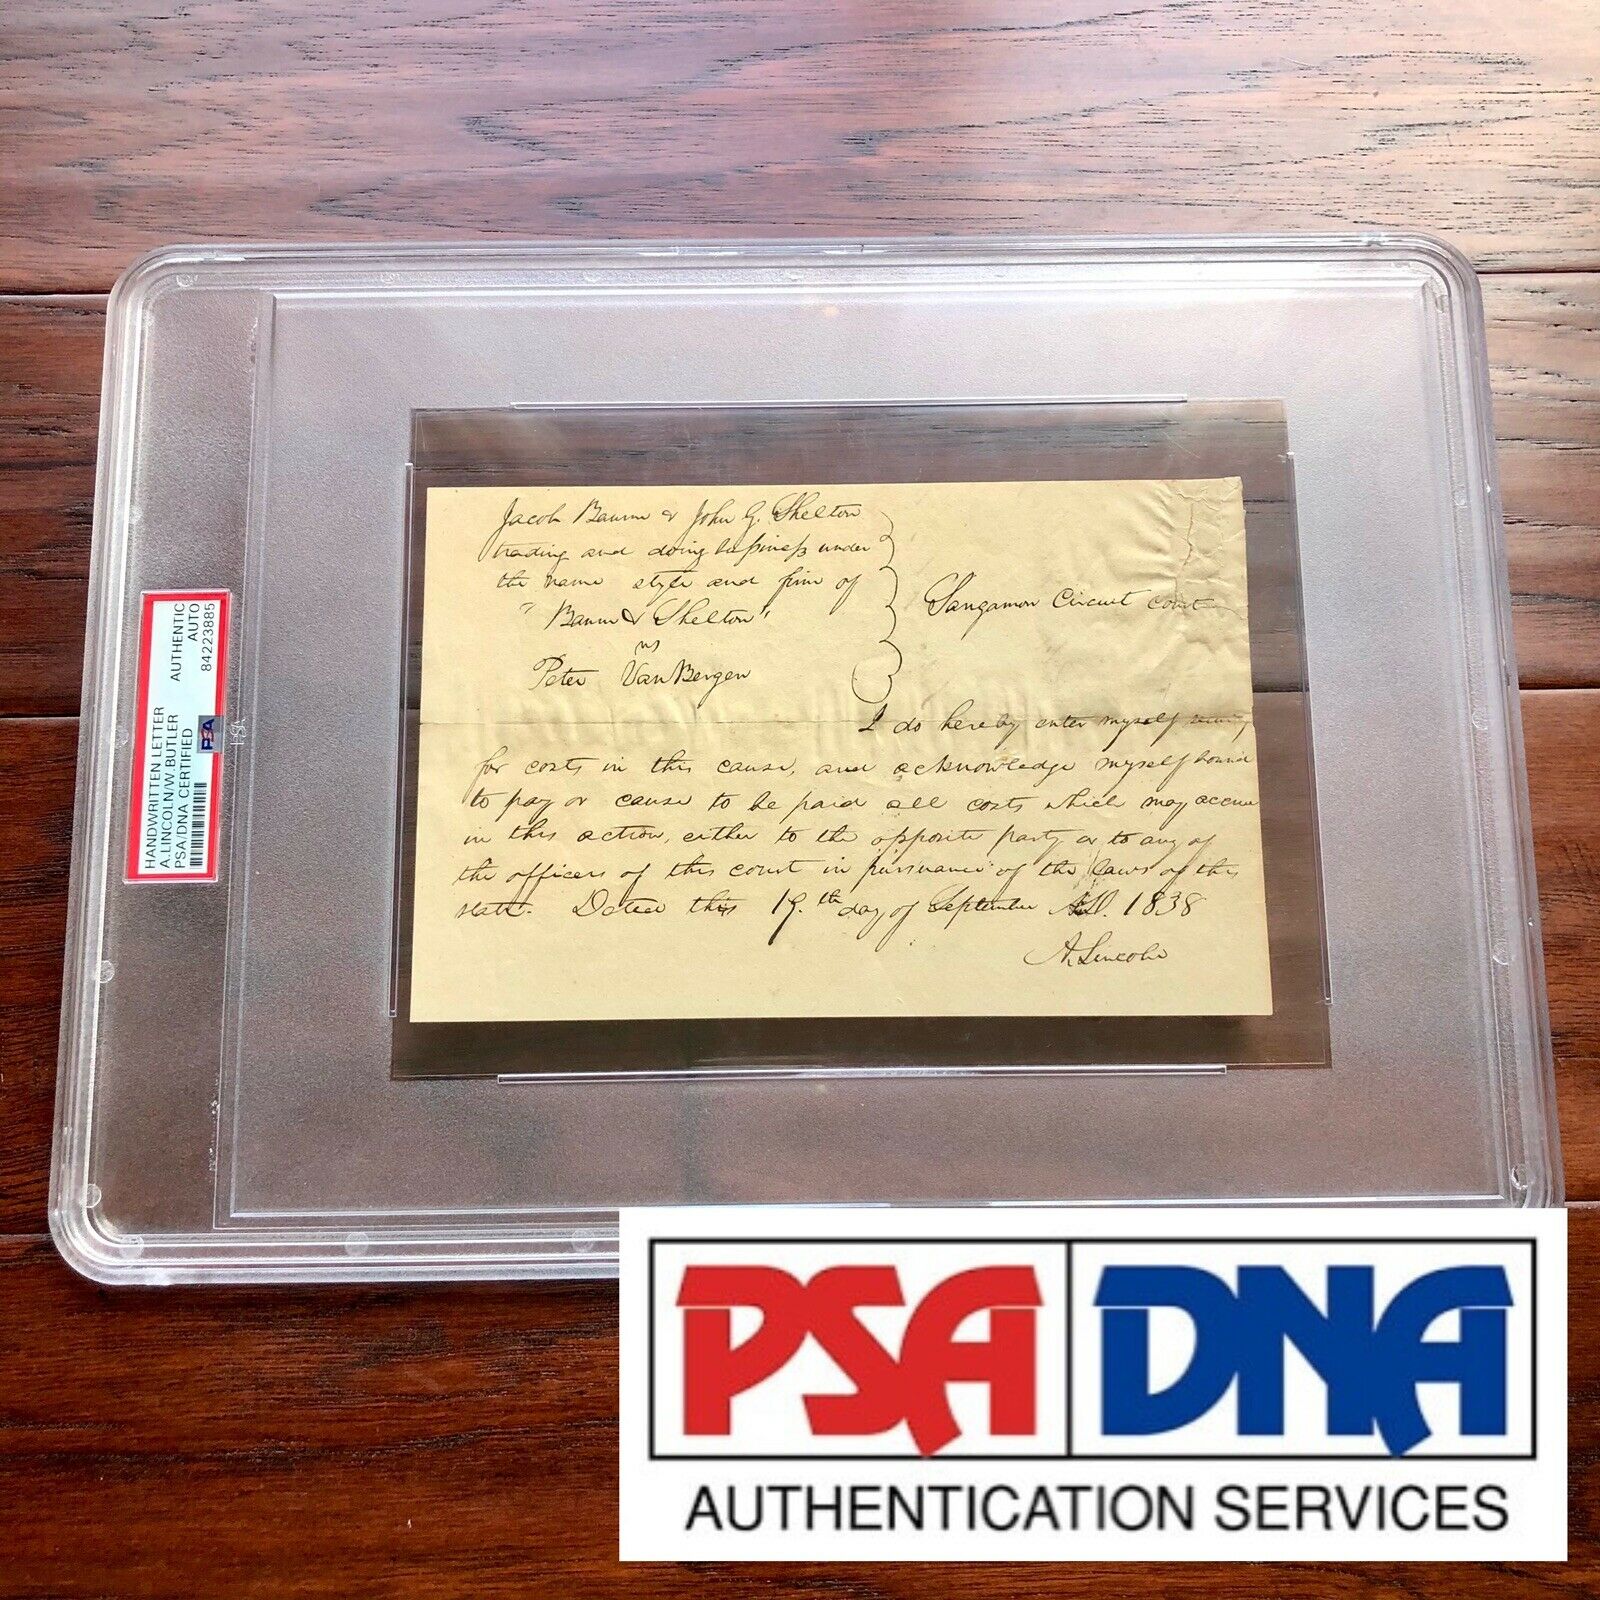 Jacob Baum & John G. Shelton
trading and doing business under
the name style and firm of
"Baum & Shelton"
vs
Peter Van Bergen
Sangamon Circuit Court
I do hereby enter myself security
for costs in this cause, and acknowledge myself bound
to pay or cause to be paid all costs which may accrue
in this action, either to the opposite party or to any of
the officers of this court in pursuance of the laws of this
state. Dated this 19.th day of September A.D. 1838
A. Lincoln
HANDWRITTEN LETTER
A.LINCOLN/W.BUTLER
PSA/DNA CERTIFIED
AUTHENTIC
AUTO
84223885
PSA
PSA
PSA DNA
AUTHENTICATION SERVICES